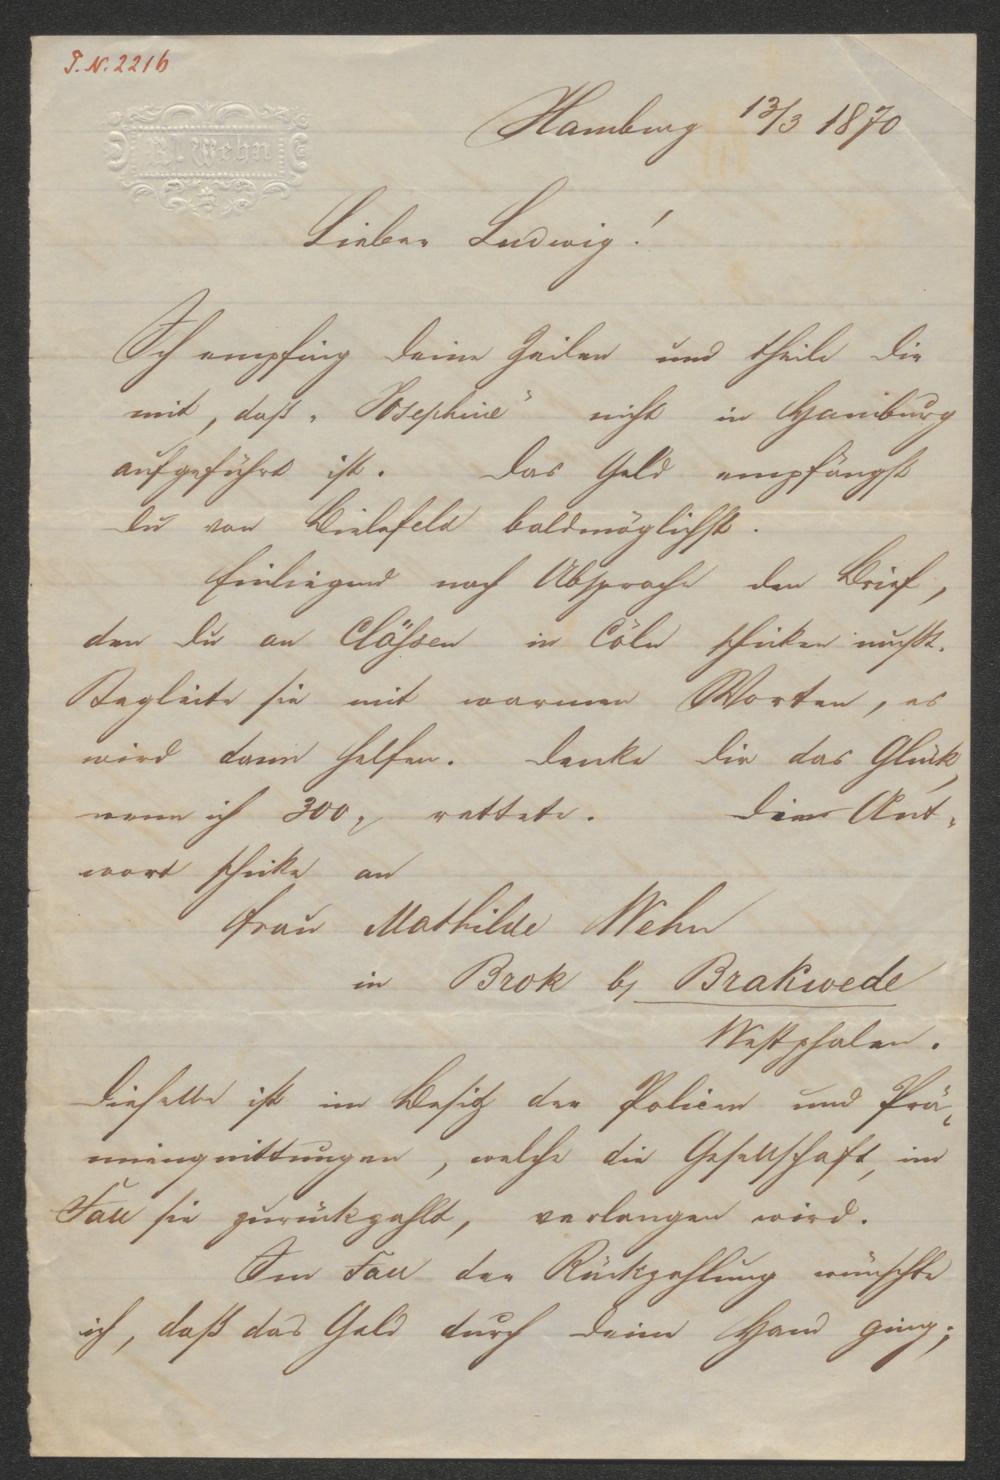 I.N. 2216
Wehn
Hamburg 13/3 1870
Lieber Ludwig!
Ich empfing Deine Zeilen und theile Dir
mit, daß „Josephine“ nicht in Hamburg
aufgeführt ist. Das Geld empfängst
Du von Bielefeld baldmöglichst.
Einliegend nach Absprache den Brief,
den Du an Claßsen in Cöln schicken mußt.
Begleite sie mit warmen Worten, es
wird dann helfen. Denke Dir das Glück,
wenn ich 300 rettete. Die Ant-
wort schicke an
Frau Mathilde Wehn
in Brok b/ Brakwede
Westphalen.
Dieselbe ist im Besitz der Policen und Prä-
mienquittungen, welche die Gesellschaft, im
Fall sie zurückzahlt, verlangen wird.
Im Fall der Rückzahlung wünschte
ich, daß das Geld durch Deine Hand ging;